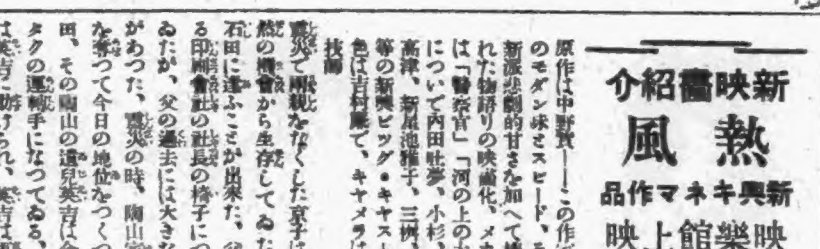 新映畫紹介
熱風
新興キネマ作品
映樂館上映
原作は中野實――この作
のモダン味とスピード、そ
新派悲劇的甘さを加へて
れた物語りの映畫化、メ
は「警察官」「河の上の
について内田吐夢、小杉、
高津、新尾池雅子、三桝、
等の新興ビッグ・キヤス
色は吉村廉で、キヤメラは
技師
震災で兩親をなくした京子は
然の機會から生存してゐた
石田に逢ふことが出來た、
る印刷會社の社長の椅子に
ゐたが、父の過去には大き
があつた、震災の時、陶山
を奪つて今日の地位をつくつ
田、その陶山の遺兒英吉は
タクの運轉手になつてゐる、
は英吉に助けられ、英吉は